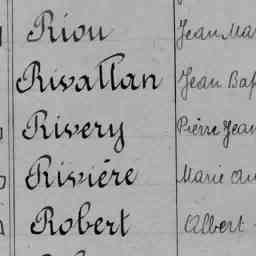 Riou Jean Mar
Rivallan Jean Bap
Rivery Pierre Jean
Rivière Marie
Robert Albert